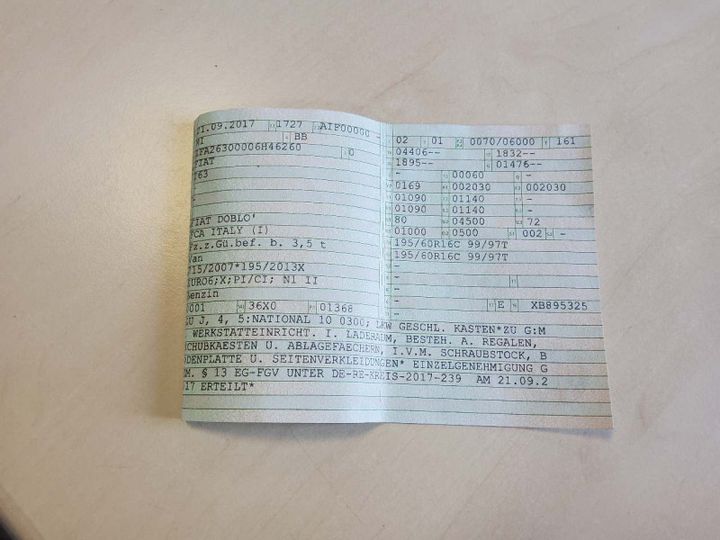 21.09.2017 1727 AIF00000
M1 BB
ZFA26300006H46260 0
FIAT
263
-
-
FIAT DOBLO'
FCA ITALY (I)
Fz.z.Gü.bef. b. 3,5 t
Van
715/2007*195/2013X
EURO6;X;PI/CI; N1 II
Benzin
0001 36X0 01368
02 01 0070/06000 161
04406-- 1832--
1895-- 01476--
- 00060 -
0169 002030 002030
01090 01140 -
01090 01140 -
80 04500 72
01000 0500 002 -
195/60R16C 99/97T
195/60R16C 99/97T
-
-
-
- E XB895325
ZU J, 4, 5:NATIONAL 10 0300; LKW GESCHL. KASTEN*ZU G:M
WERKSTATTEINRICHT. I. LADERAUM, BESTEH. A. REGALEN,
SCHUBKAESTEN U. ABLAGEFAECHERN, I.V.M. SCHRAUBSTOCK, B
ODENPLATTE U. SEITENVERKLEIDUNGEN* EINZELGENEHMIGUNG G
EM. § 13 EG-FGV UNTER DE-RE-KREIS-2017-239 AM 21.09.2
017 ERTEILT*